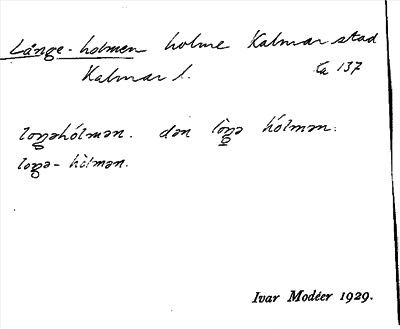 Långe-holmen holme Kalmar stad
Kalmar l. Ea 137
loŋəhólmən. dən lòŋə hólmən.
loŋə-hòlmən.
Ivar Modéer 1929.